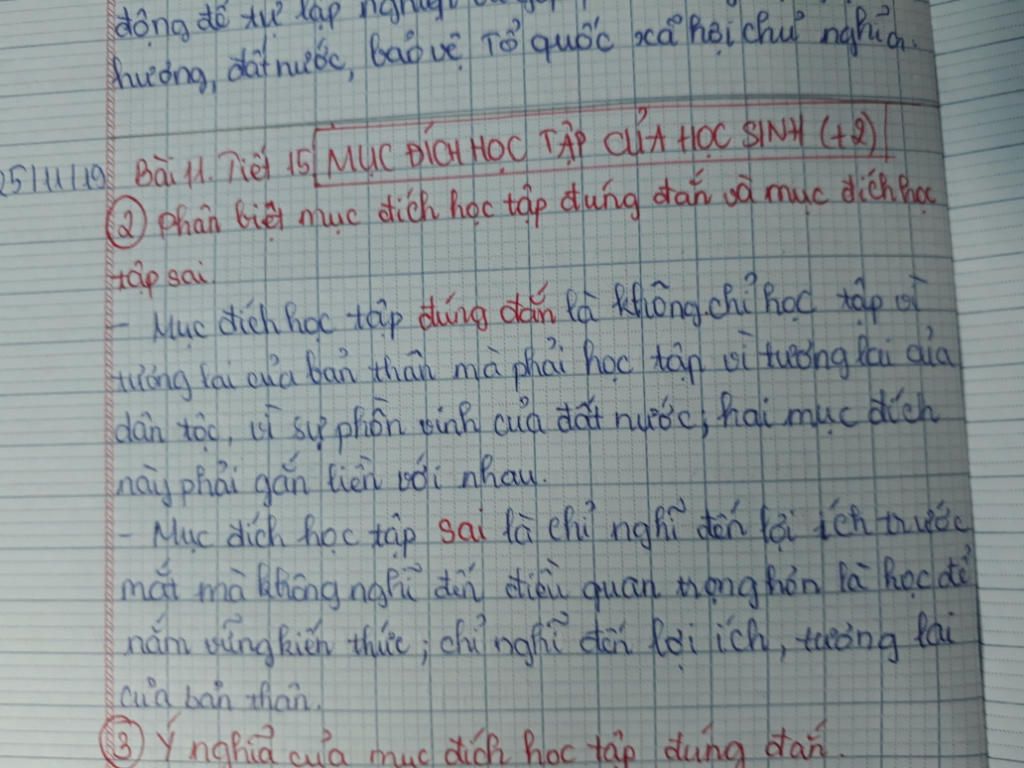 động để tự lập nghiệp
hương, đất nước, bảo vệ Tổ quốc xã hội chủ nghĩa.
25/11/19 Bài 11. Tiết 15 MỤC ĐÍCH HỌC TẬP CỦA HỌC SINH (t2)
② Phân biệt mục đích học tập đúng đắn và mục đích học
tập sai.
- Mục đích học tập đúng đắn là không chỉ học tập vì
tương lai của bản thân mà phải học tập vì tương lai của
dân tộc, vì sự phồn vinh của đất nước, hai mục đích
này phải gắn liền với nhau.
- Mục đích học tập sai là chỉ nghĩ đến lợi ích trước
mắt mà không nghĩ đến điều quan trọng hơn là học để
nắm vững kiến thức; chỉ nghĩ đến lợi ích, tương lai
của bản thân.
③ Ý nghĩa của mục đích học tập đúng đắn.